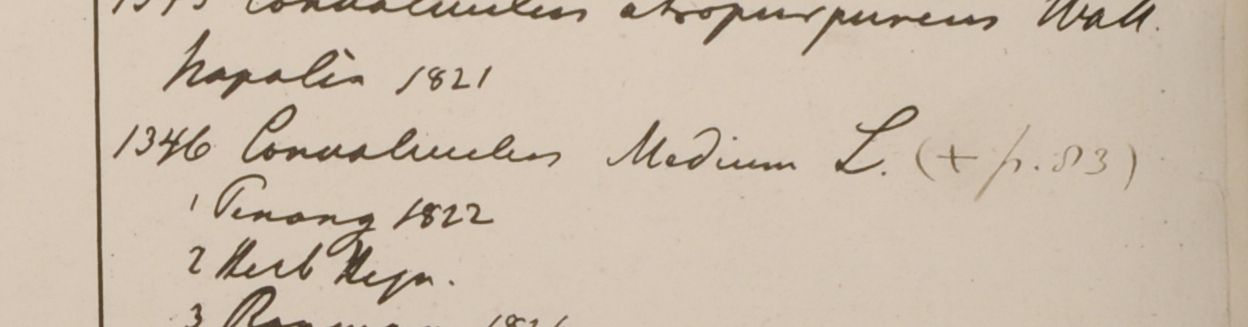 1345 Convolvulus atropurpureus Wall.
Napalia 1821
1346 Convolvulus Medium L. (+ p. 83)
1 Penang 1822
2 Herb Heyn.
3 1826